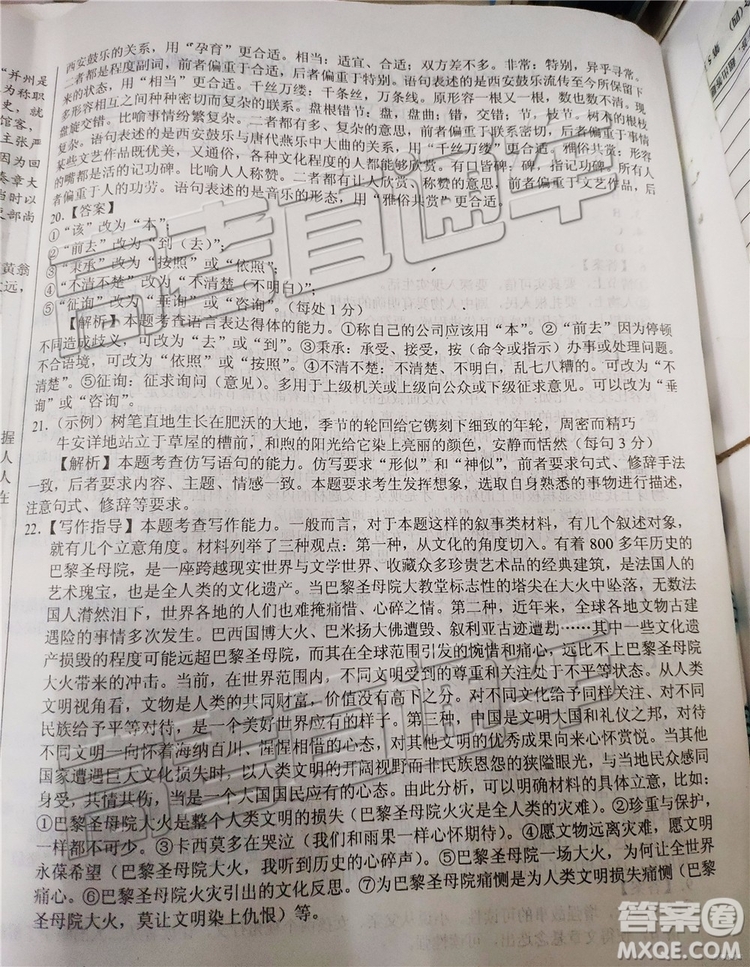 西安鼓乐的关系，用“孕育”更合适。相当：适宜、合适；双方差不多。非常：特别，异乎寻常。
二者都是程度副词，前者偏重于合适，后者偏重于特别。语句表述的是西安鼓乐流传至今所保留下
来的状态，用“相当”更合适。千丝万缕：千条丝，万条线。原形容一根又一根，数也数不清。现
多形容相互之间种种密切而复杂的联系。盘根错节：盘，盘曲；错，交错；节，枝节。树木的根枝
盘旋交错。比喻事情纷繁复杂。二者都有多、复杂的意思，前者偏重于联系密切，后者偏重于事情
复杂。语句表述的是西安鼓乐与唐代燕乐中大曲的关系，用“千丝万缕”更合适。雅俗共赏：形容
某些文艺作品既优美，又通俗，各种文化程度的人都能够欣赏。有口皆碑：碑，指记功碑。所有人
的嘴都是活的记功碑。比喻人人称赞。二者都有让人欣赏、称赞的意思，前者偏重于文艺作品，后
者偏重于人的功劳。语句表述的是音乐的形态，用“雅俗共赏”更合适。
20.【答案】
①“该”改为“本”；
②“前去”改为“到（去）”；
③“秉承”改为“按照”或“依照”；
④“不清不楚”改为“不清楚（不明白）”；
⑤“征询”改为“垂询”或“咨询”。（每处1分）
【解析】本题考查语言表达得体的能力。①称自己的公司应该用“本”。②“前去”因为停顿
不同造成歧义，可改为“去”或“到”。③秉承：承受、接受，按（命令或指示）办事或处理问题。
不合语境，可改为“依照”或“按照”。④不清不楚：不清楚、不明白，乱七八糟的。可改为“不
清楚”。⑤征询：征求询问（意见）。多用于上级机关或上级向公众或下级征求意见。可以改为“垂
询”或“咨询”。
21.（示例）树笔直地生长在肥沃的大地，季节的轮回给它镌刻下细致的年轮，周密而精巧
牛安详地站立于草屋的槽前，和煦的阳光给它染上亮丽的颜色，安静而恬然（每句3分）
【解析】本题考查仿写语句的能力。仿写要求“形似”和“神似”，前者要求句式、修辞手法
一致，后者要求内容、主题、情感一致。本题要求考生发挥想象，选取自身熟悉的事物进行描述，
注意句式、修辞等要求。
22.【写作指导】本题考查写作能力。一般而言，对于本题这样的叙事类材料，有几个叙述对象，
就有几个立意角度。材料列举了三种观点：第一种，从文化的角度切入。有着800多年历史的
巴黎圣母院，是一座跨越现实世界与文学世界、收藏众多珍贵艺术品的经典建筑，是法国人的
艺术瑰宝，也是全人类的文化遗产。当巴黎圣母院大教堂标志性的塔尖在大火中坠落，无数法
国人潸然泪下，世界各地的人们也难掩痛惜、心碎之情。第二种，近年来，全球各地文物古建
遇险的事情多次发生。巴西国博大火、巴米扬大佛遭毁、叙利亚古迹遭劫……其中一些文化遗
产损毁的程度可能远超巴黎圣母院，而其在全球范围引发的惋惜和痛心，远比不上巴黎圣母院
大火带来的冲击。当前，在世界范围内，不同文明受到的尊重和关注处于不平等状态。从人类
文明视角看，文物是人类的共同财富，文明不应有高下之分。对不同文化给予同样关注，对不同
民族给予平等对待，是一个美好世界应有的样子。第三种，中国是文明大国和礼仪之邦，对待
不同文明一向怀着海纳百川、惺惺相惜的心态，对其他文明的优秀成果向来心向往之。当其他
国家遭遇巨大文化损失时，以人类文明的开阔视野而非民族恩怨的狭隘眼光，与当地民众感同
身受，共情共伤，当是一个大国国民应有的心态。由此分析，可以明确材料的具体立意，比如：
①巴黎圣母院火灾是整个人类文明的损失（巴黎圣母院火灾是全人类的灾难）。②珍重与保护，
一样都不能少。③卡西莫多在哭泣（我们和雨果一样心怀期待）。④愿文物远离灾难，文明
永葆希望（巴黎圣母院大火，我听到了历史的心碎声）。⑤巴黎圣母院一场大火，为何让全世界
痛心。⑥巴黎圣母院火灾引出的文化反思。⑦为巴黎圣母院痛恻是为人类文明损失痛恻（巴黎
圣母院大火，莫让文明染上仇恨）等。
答案圈
MXQE.COM